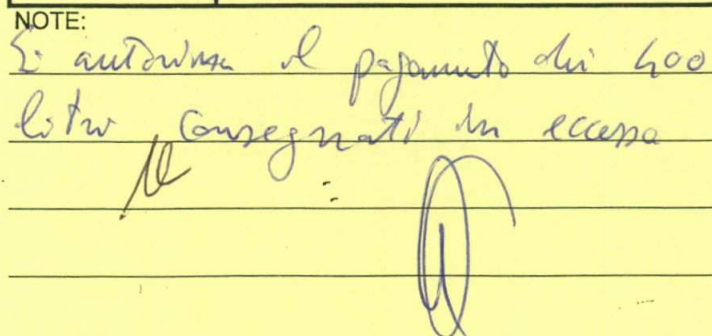 NOTE:
Si autorizza il pagamento dei 400
litri consegnati in eccesso